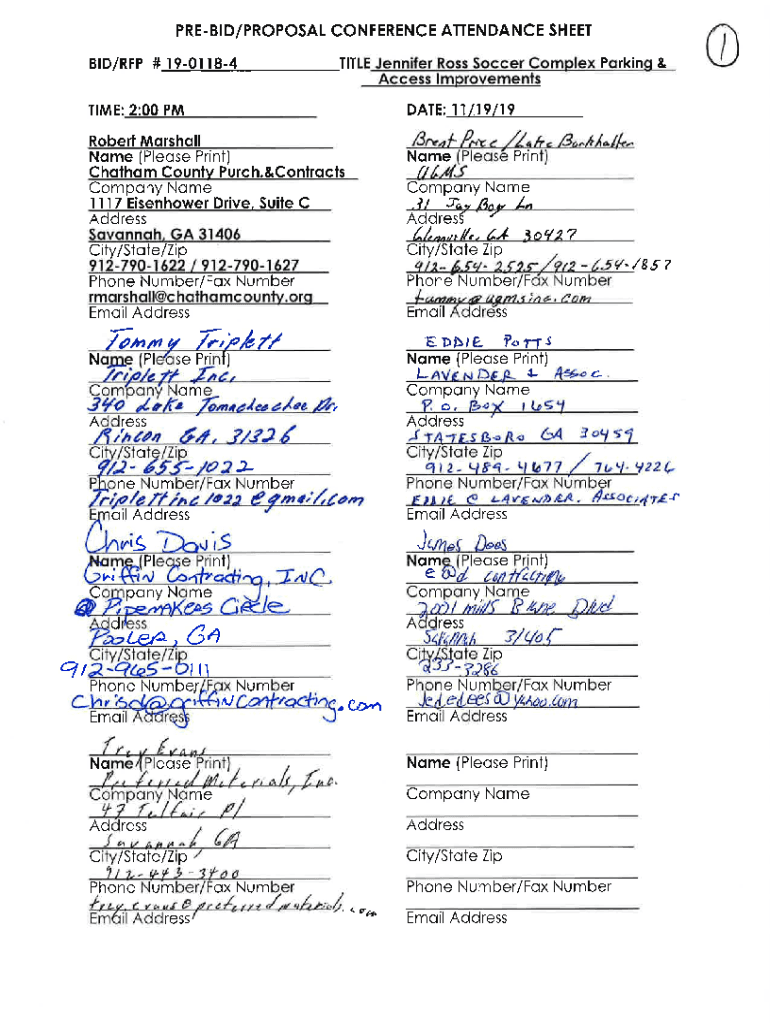 PRE-BID/PROPOSAL CONFERENCE ATTENDANCE SHEET
1
BID/RFP # 19-0118-4
TITLE Jennifer Ross Soccer Complex Parking &
Access Improvements
TIME: 2:00 PM
DATE: 11/19/19
Robert Marshall
Name (Please Print)
Chatham County Purch.&Contracts
Company Name
1117 Eisenhower Drive, Suite C
Address
Savannah, GA 31406
City/State/Zip
912-790-1622 / 912-790-1627
Phone Number/Fax Number
rmarshall@chathamcounty.org
Email Address
Brent Price / Burkhalter
Name (Please Print)
UGMS
Company Name
31 Jay Bow Ln
Address
Glennville, GA 30427
City/State Zip
912-654-2525/912-654-1857
Phone Number/Fax Number
tammy@ugmsinc.com
Email Address
Tommy Triplett
Name (Please Print)
Triplett Inc,
Company Name
340 Lake Tomacheechee Dr.
Address
Rincon GA, 31326
City/State/Zip
912-655-1022
Phone Number/Fax Number
Triplettinc1022@gmail.com
Email Address
EDDIE POTTS
Name (Please Print)
LAVENDER & ASSOC.
Company Name
P.O. BOX 1654
Address
STATESBORO GA 30459
City/State Zip
912-489-4677 / 764-4226
Phone Number/Fax Number
EDDIE @ LAVENDER. ASSOCIATES
Email Address
Chris Davis
Name (Please Print)
Griffin Contracting, INC.
Company Name
Pipemakers Circle
Address
Pooler, GA
City/State/Zip
912-965-0111
Phone Number/Fax Number
Chrisd@griffincontracting.com
Email Address
James Dees
Name (Please Print)
e and contracting
Company Name
2001 mills B Lane Blvd
Address
Savannah 31405
City/State Zip
233-3286
Phone Number/Fax Number
jededees@yahoo.com
Email Address
Trey Evans
Name (Please Print)
Preferred Materials, Inc.
Company Name
47 Telfair Pl
Address
Savannah GA
City/State/Zip
912-443-3400
Phone Number/Fax Number
trey.evans@preferredmaterials.com
Email Address
Name (Please Print)
Company Name
Address
City/State Zip
Phone Number/Fax Number
Email Address